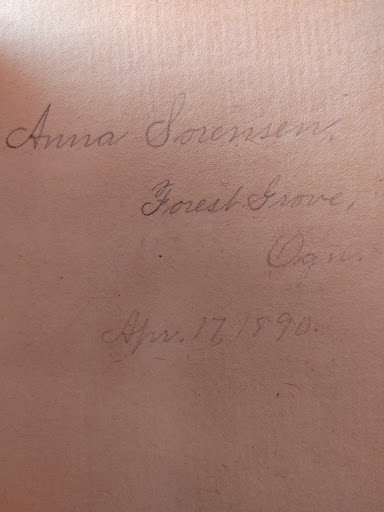 Anna Sorensen,
Forest Grove,
Ogn.
Apr. 17, 1890.